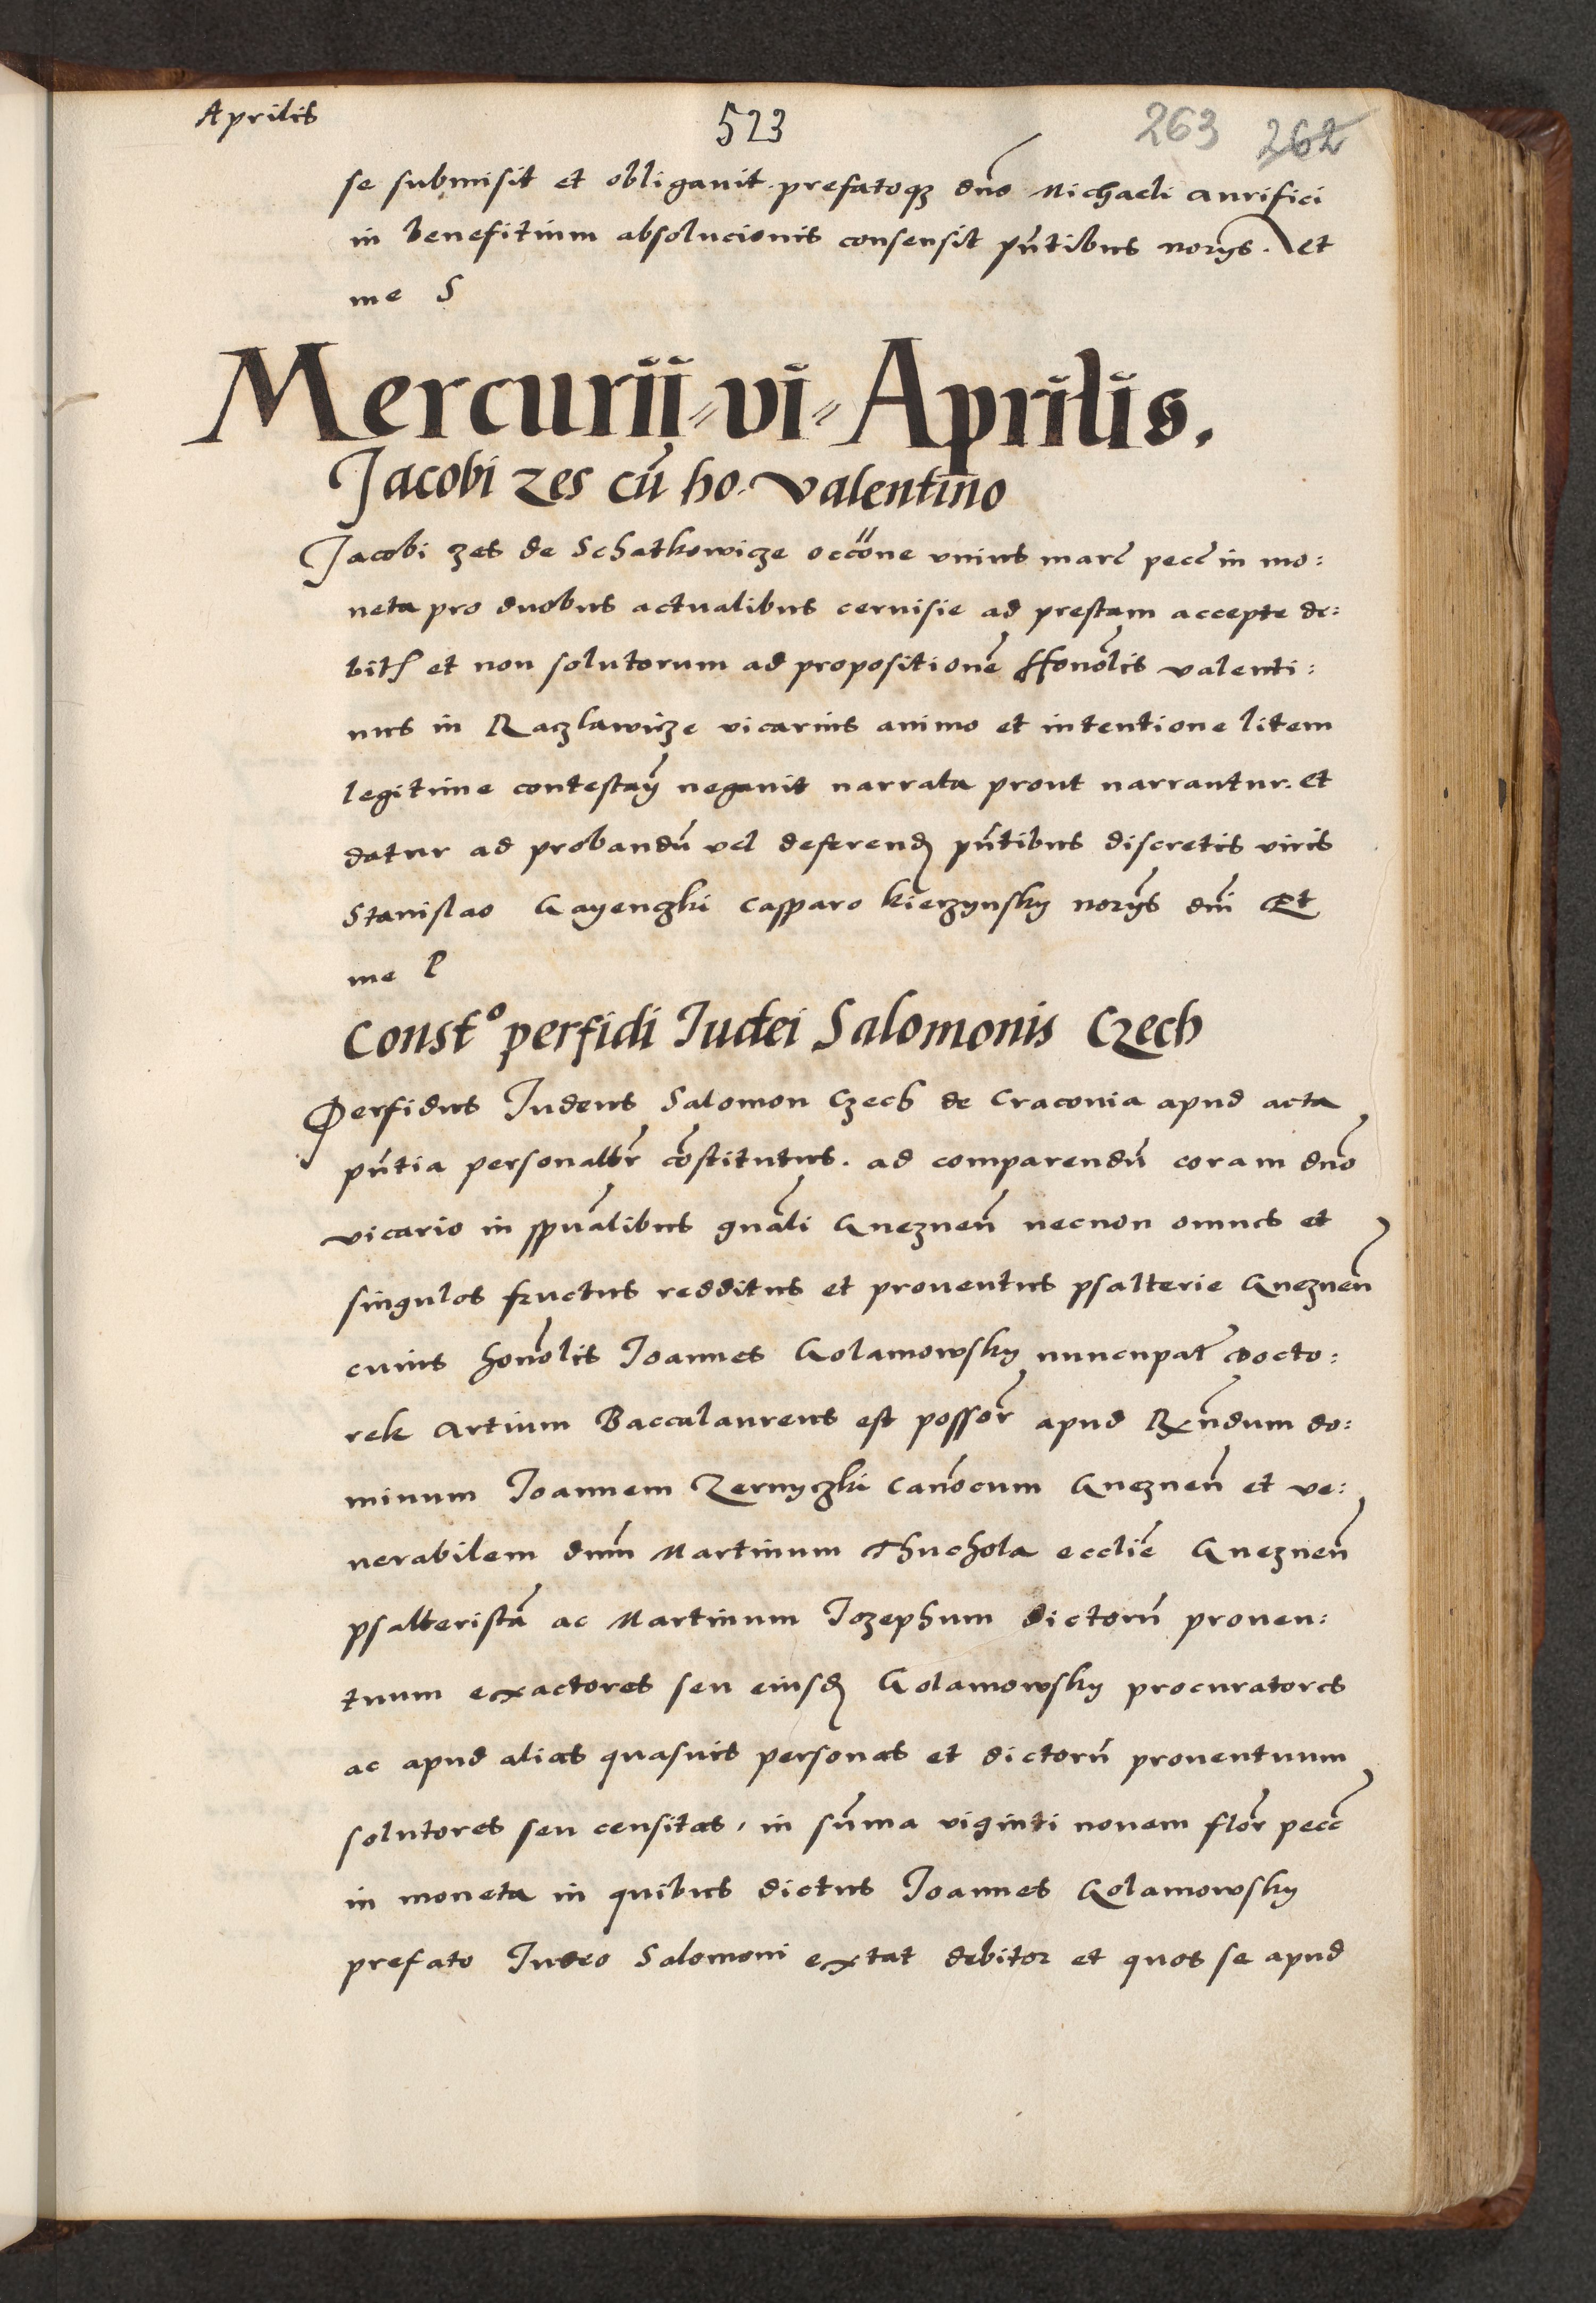 Aprilis
523
263 262
se submisit et obligauit. prefatoq3 dn̄o Michaeli aurifici
in benefitium absolucionis consensit pn̄tibus norijs. Et
me S
Mercurii vi Aprilis.
Jacobi zes cū ho. valentino
Jacobi zes de Schatkowicze occōne vnius marc̄ pecc̄ in mo:
neta pro duobus actualibus ceruisie ad prestam accepte de:
bit et non solutorum ad propositionē Honōlis valenti:
nus in Raczlawicze vicarius animo et intentione litem
legitime contestan̄ negauit narrata prout narrantur. Et
datur ad probandū vel deferend pn̄tibus discretis viris
Stanislao Gayenczki Casparo kierzynsky norijs dn̄i Et
me P
Constº perfidi Iudei Salomonis Czech
Perfidus Iudeus Salomon Czech de Craconia apud acta
pn̄tia personalit̄r cōstitutus. ad comparendū coram dn̄o
vicario in spūalibus gnāli Gneznen̄ necnon omnes et
singulos fructus redditus et prouentus psalterie Gneznen̄
cuius honōlis Ioannes Golamowsky nuncupat̄ docto:
rek Artium Baccalaureus est possor̄ apud Rn̄dum do:
minum Ioannem Zernyczki Canōcum Gneznen̄ et ve:
nerabilem dn̄m Martinum Thuchola ecclīe Gneznen̄
psalteristā ac Martinum Iozephum dictorū prouen:
tuum exactores seu eiusd Golamowsky procuratores
ac apud alias quasuis personas et dictorū prouentuum
solutores seu censitas, in sūma viginti nouem flor̄ pecc̄
in moneta in quibus dictus Ioannes Golamowsky
prefato Iudeo Salomoni extat debitor et quos se apud